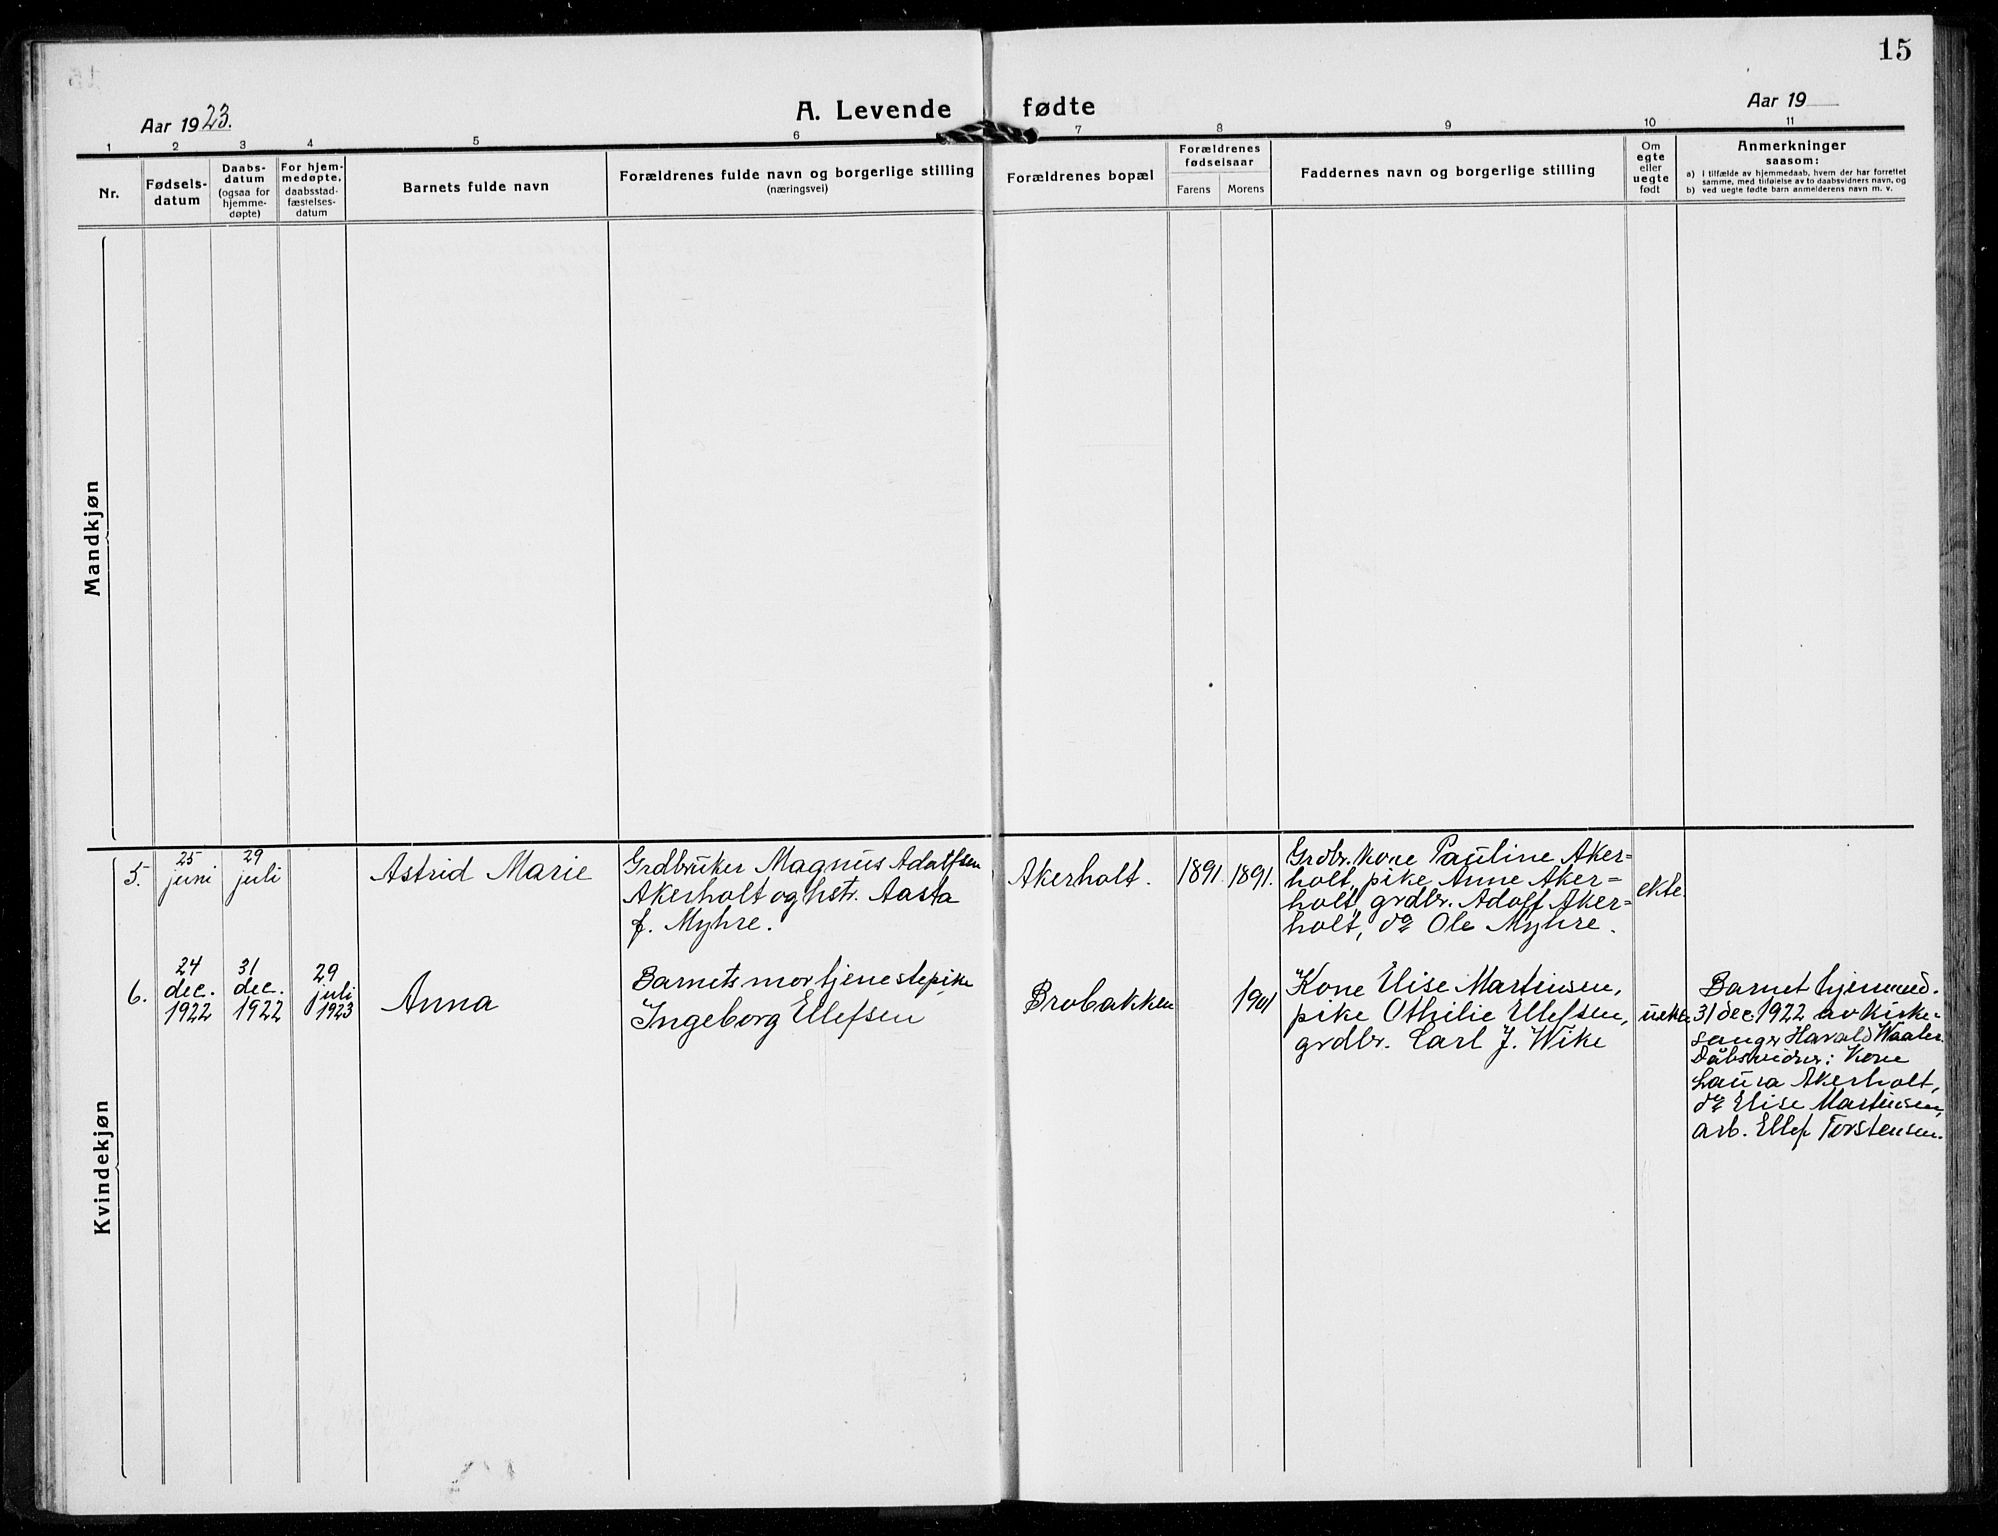 15
A. Levende fødte
Aar 1923.
Aar 19
1 2 3 4 5 6 7 8 9 10 11
Nr.
Fødsels-
datum
Daabs-
datum
(ogsaa for
hjemme-
døpte)
For hjem-
medøpte,
daabsstad-
fæstelses-
datum
Barnets fulde navn
Forældrenes fulde navn og borgerlige stilling
(næringsvei)
Forældrenes bopæl
Forældrenes
fødselsaar
Farens
Morens
Faddernes navn og borgerlige stilling
Om
egte
eller
uegte
født
Anmerkninger
saasom:
a) i tilfælde av hjemmedaab, hvem der har forrettet
samme, med tilføielse av to daabsvidners navn, og
b) ved uegte fødte barn anmelderens navn m. v.
Mandkjøn
Kvindekjøn
5.
25
juni
29
juli
Astrid Marie
Grdbruker Magnus Adolfsen
Akerholt og hstr. Aasta
f. Myhre.
Akerholt.
1891.
1891.
Grdbr. kone Pauline Aker=
holt, pike Anne Aker=
holt, grdbr. Adolf Aker=
holt, do Ole Myhre.
ekte.
6.
24
dec.
1922
31
dec.
1922
29
juli
1923
Anna
Barnets mor tjenestepike
Ingeborg Ellefsen
Brobakken
1901
Kone Elise Martinsen,
pike Othilie Ellefsen,
grdbr. Carl J. Wike
uekte
Barnet hjemmed.
31 dec. 1922 av kirke-
sanger Harald Waaler.
Dåbsvidner: Kone
Laura Akerholt,
do Elise Martinsen,
arb. Ellef Torstensen.